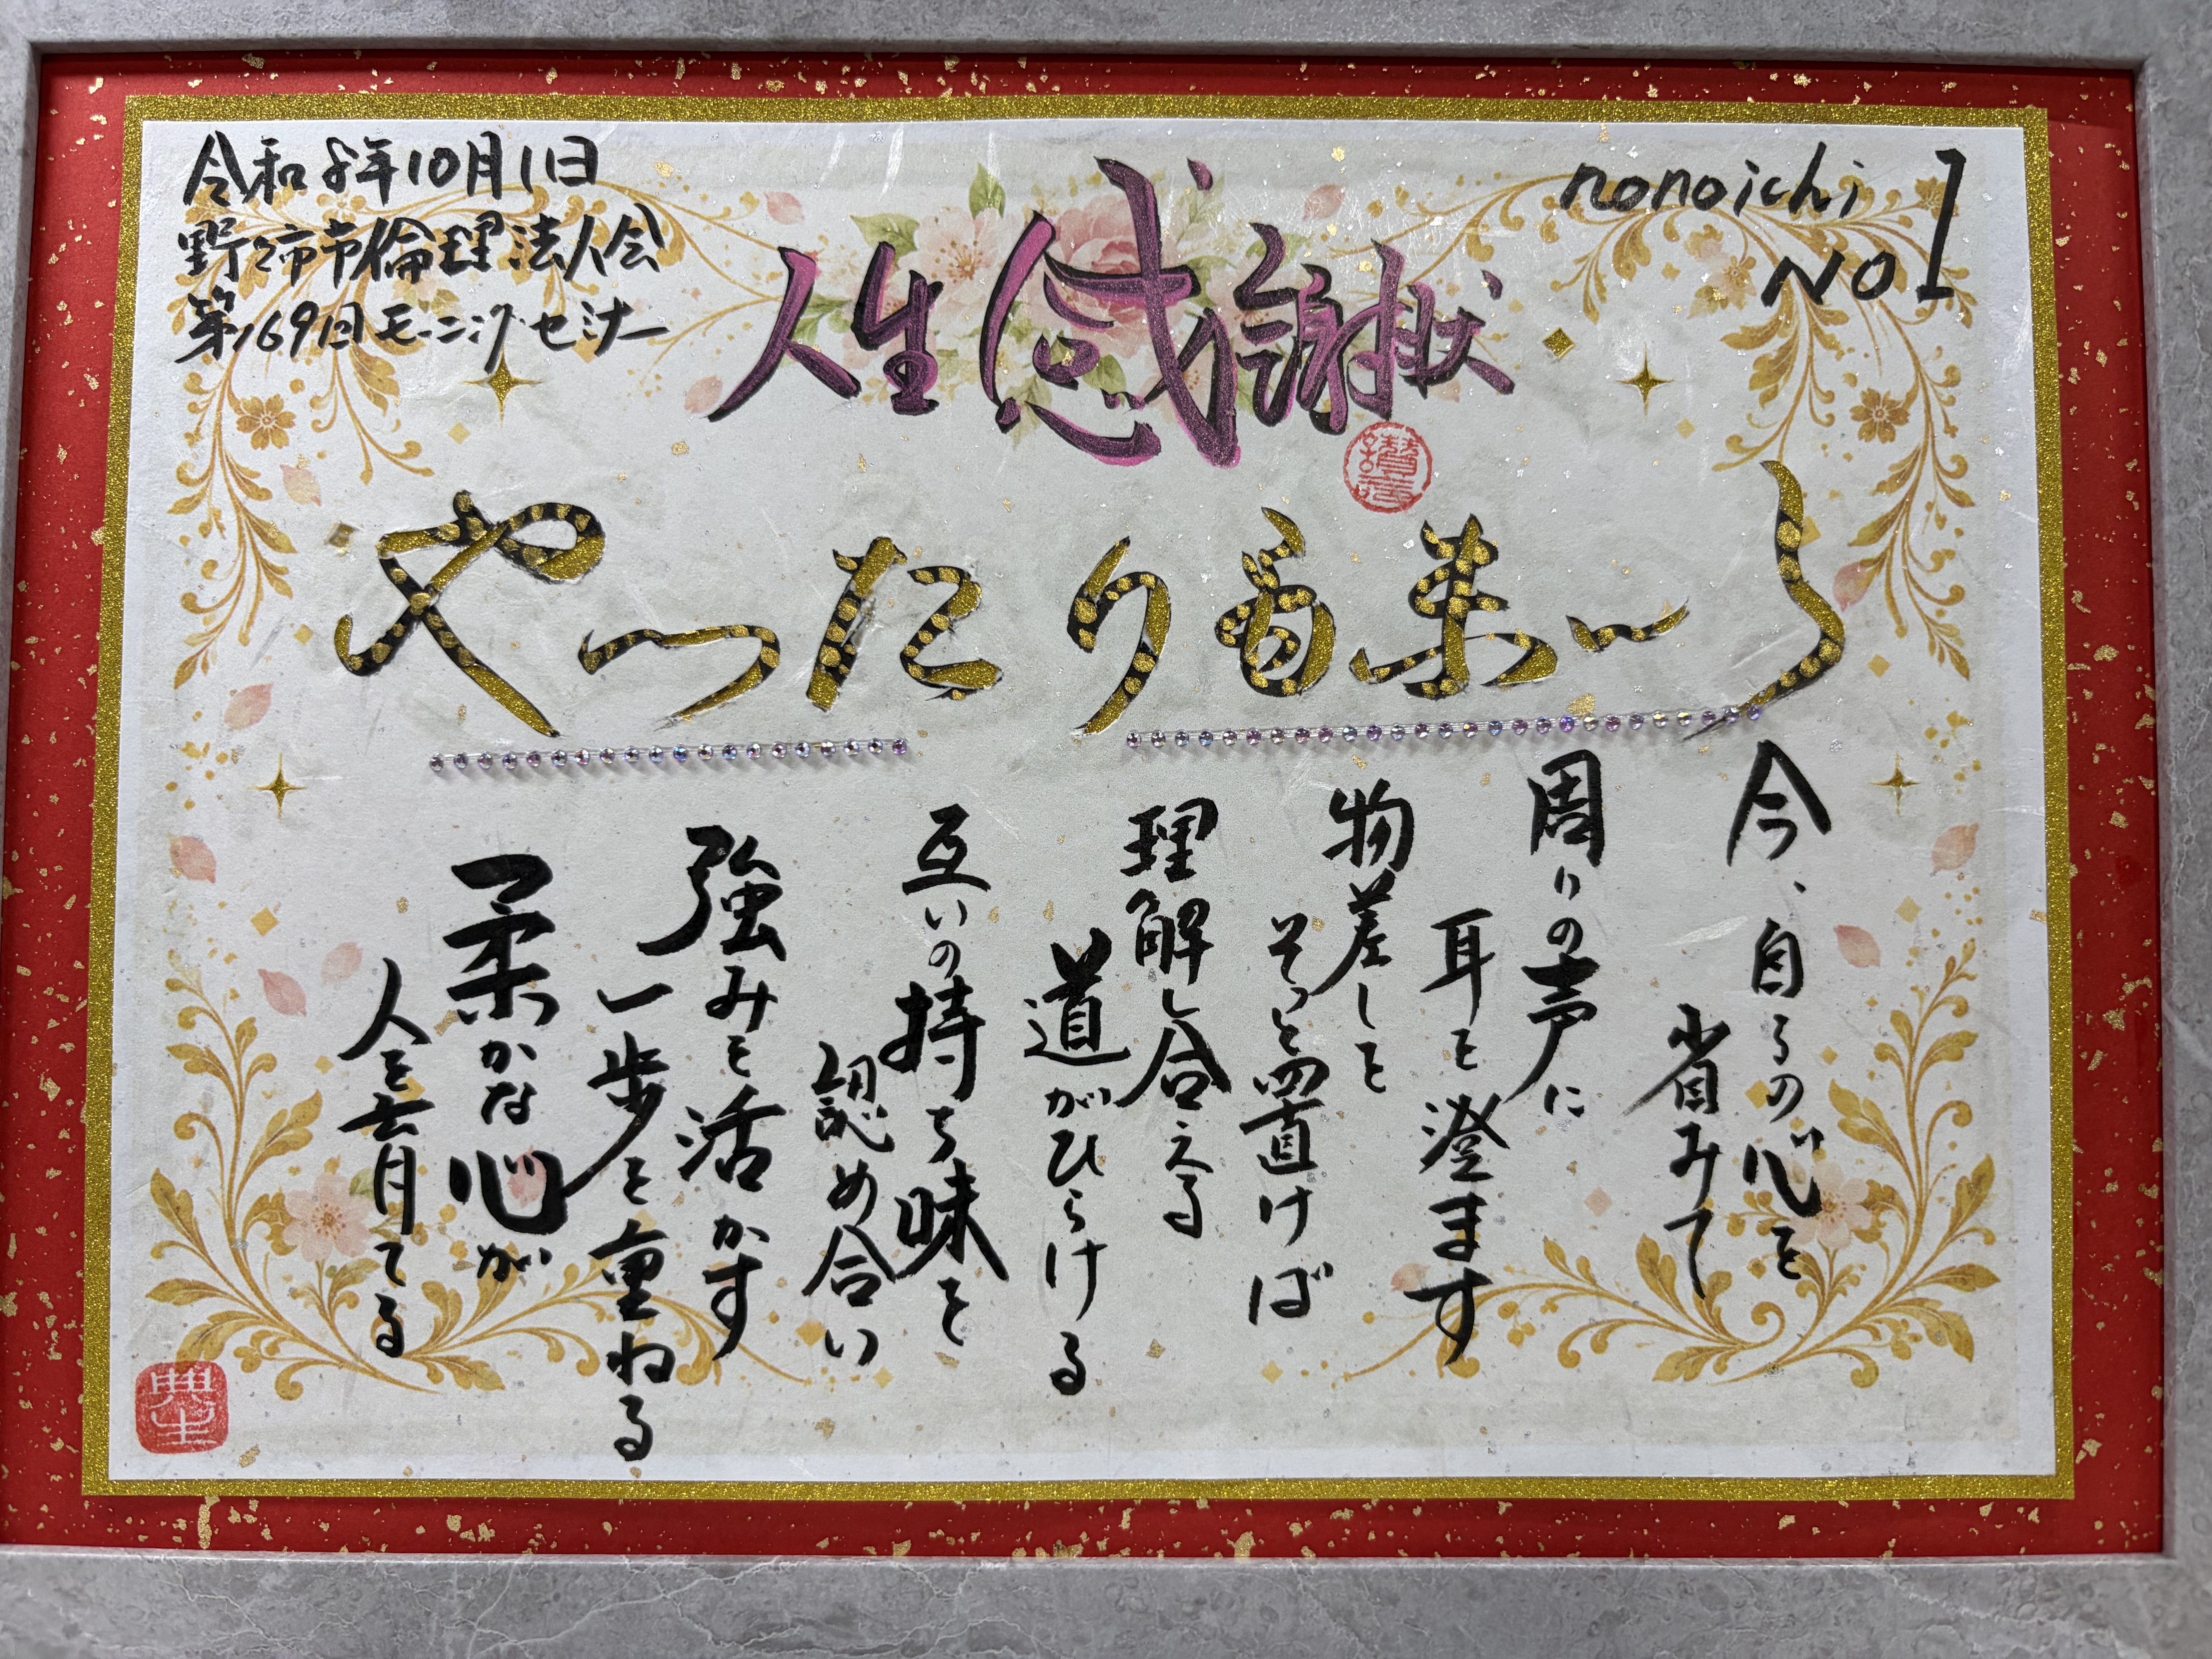 令和8年10月1日
野々市市倫理法人会
第169回モーニングセミナー
nonoichi
NO1
人生感謝状
やったり
今、自らの心を
省みて
周りの声に
耳を澄ます
物差しを
そっと置けば
理解し合える
道がひらける
互いの持ち味を
認め合い
強みを活かす
一歩を重ねる
柔かな心が
人を育てる